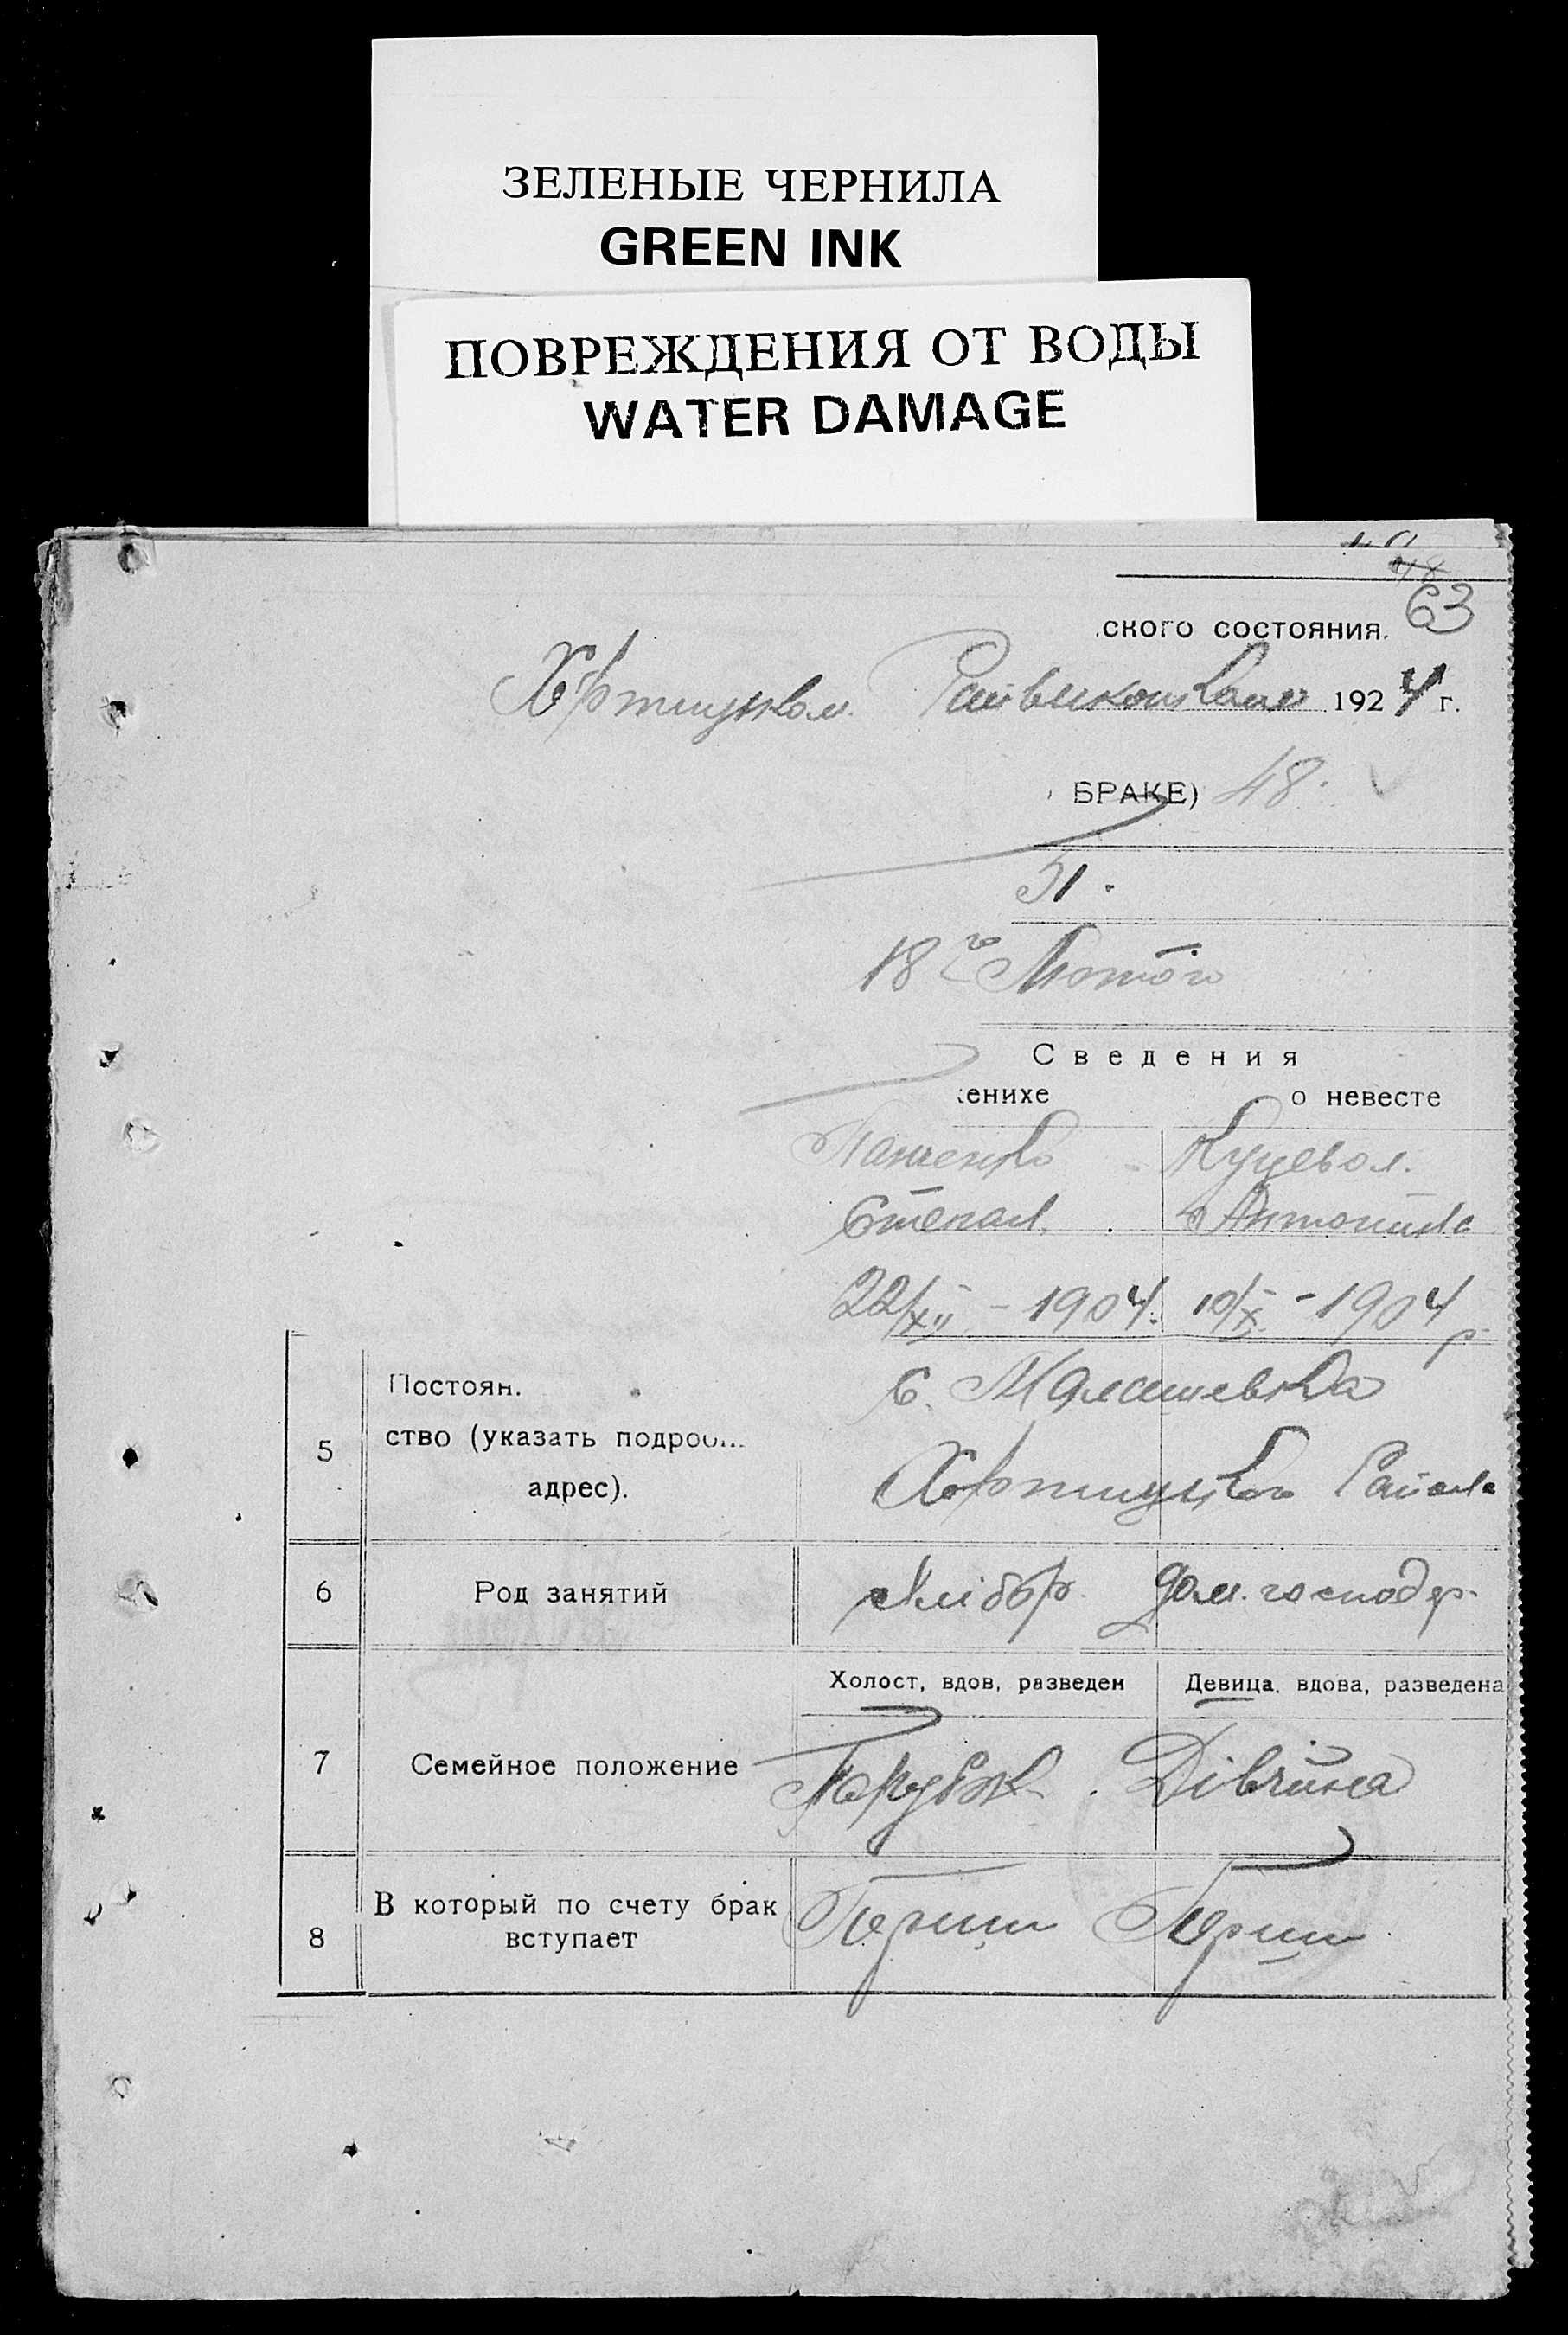 ЗЕЛЕНЫЕ ЧЕРНИЛА
GREEN INK
ПОВРЕЖДЕНИЯ ОТ ВОДЫ
WATER DAMAGE
48
63
ского состояния.
Хортицьком. Райвиконкомом 1924 г.
БРАКЕ) 48.
31.
18го Лютого
Сведения
енихе о невесте
Панченко Куцевол.
Степан. Антонина
22/XII - 1904. 10/X - 1904 р.
5 Постоян.
ство (указать подроб
адрес).
с. Малашевка
Хортицького Района
6 Род занятий Хлібор. дом. господар.
Холост, вдов, разведен Девица, вдова, разведена
7 Семейное положение Парубок. Дівчина
8 В который по счету брак
вступает
Перший Перший